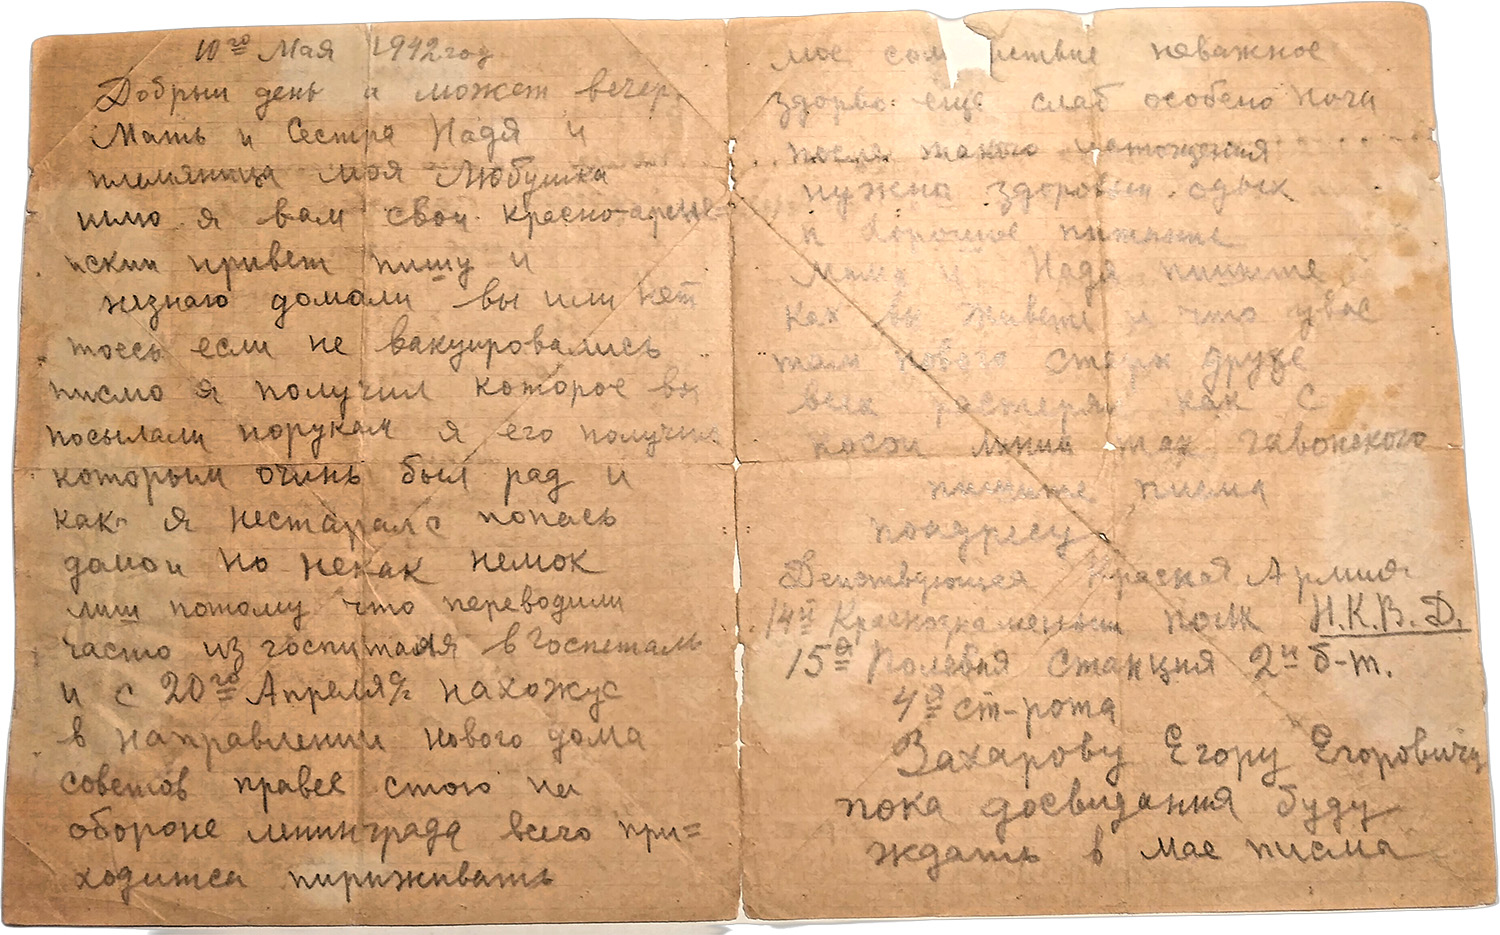 10го Мая 1942 год
Добрый день а может вечер
Мать и Сестра Надя и
племяница моя Любушка
шлю я вам свой красно-арме-
йский привет пишу и
незнаю домали вы или нет
тоесь если не вакуировались
писмо я получил которое вы
посылали порукам я его получил
которым очинь был рад и
как я нестаралс попась
домой но некак немок
лиш потому что переводили
часто из госпиталя в госпеталь
и с 20го Апреля нахожус
в направлении нового дома
советов правее стою на
обороне ленинграда всего при=
ходитса пириживать
мое неважное
здорво еще слаб особено ноги
после такого истощения
нужно здоровый одых
и хорошое питание
Мама и Надя пишите
как вы живете и что увас
там нового старх друзе
всех растерял как с
пишите писма
поадресу
Действующея Красная Армия
14й Краснознаменый полк Н.К.В.Д.
15я Полевая станция 2й б-т.
4я ст-рота
Захарову Егору Егоровичу
пока досвидания буду
ждать в Мае писма